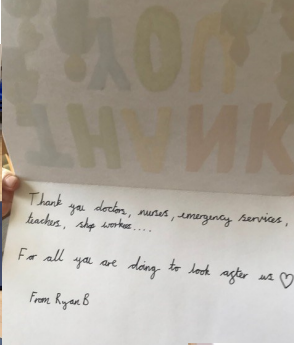 THANK
YOU
Thank you doctors, nurses, emergency services,
teachers, shop workers....
For all you are doing to look after us ♡
From Ryan B